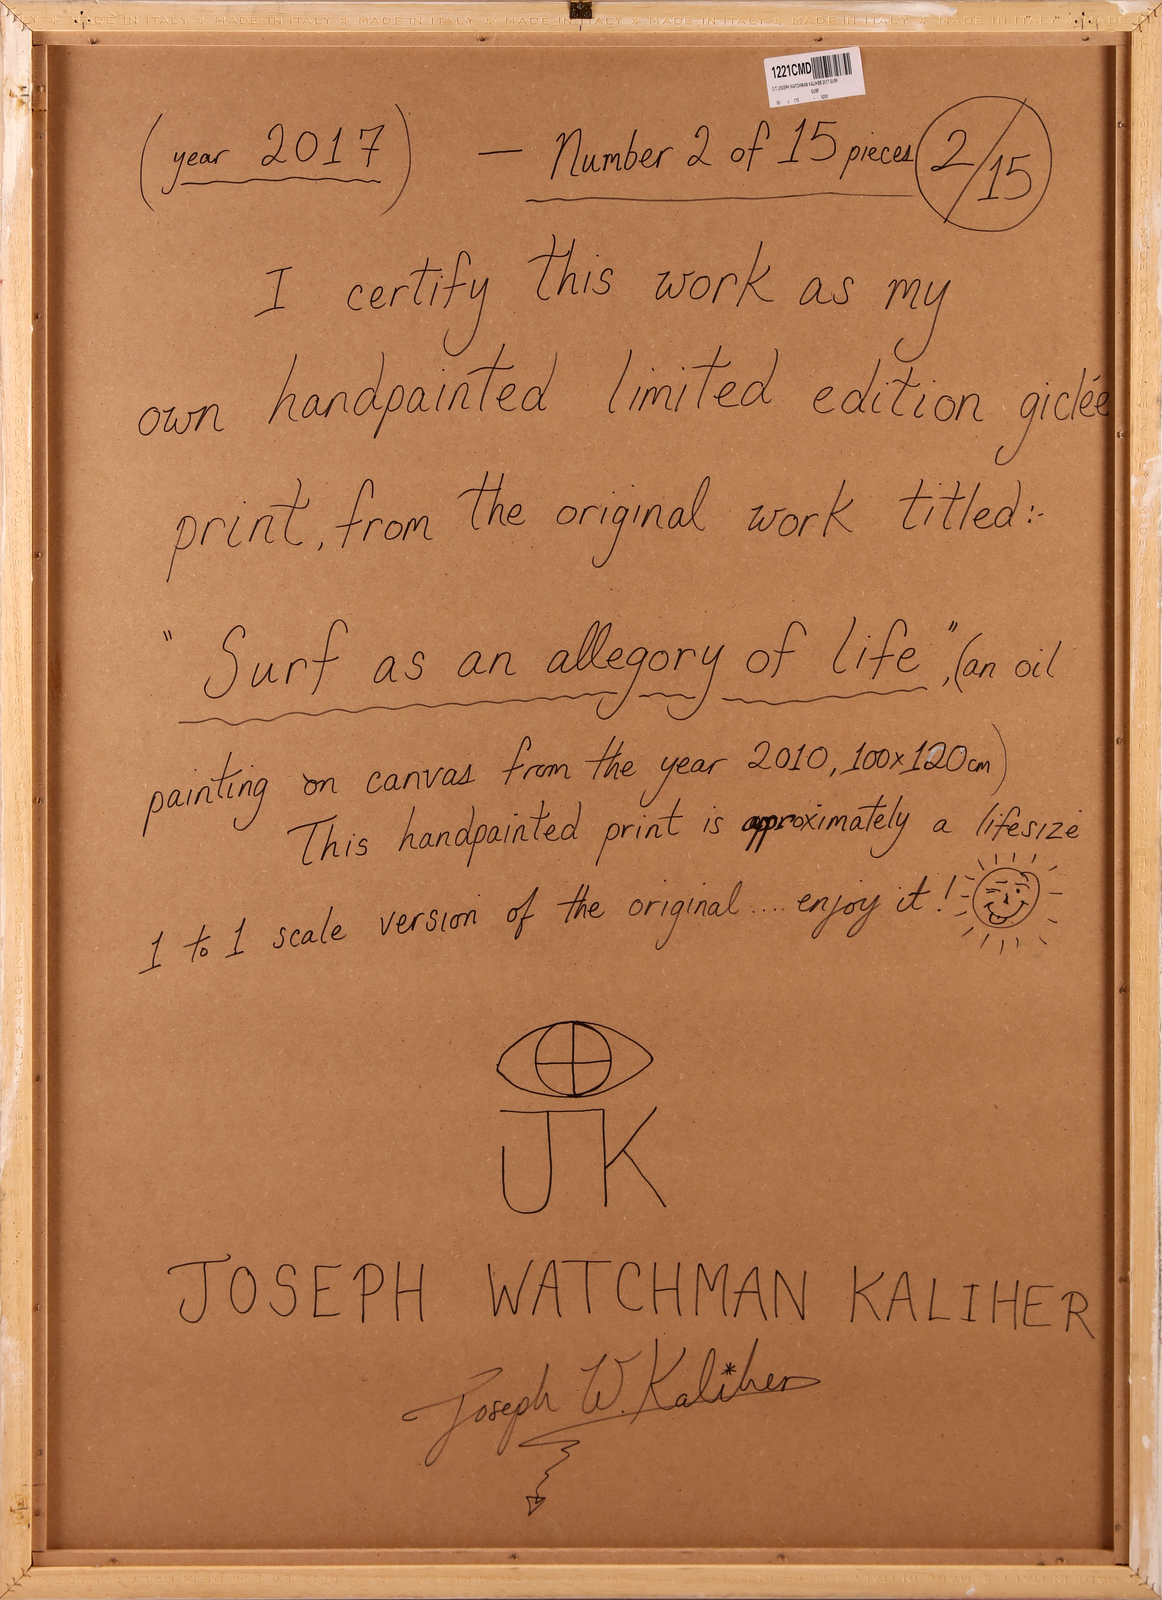 MADE IN ITALY MADE IN ITALY MADE IN ITALY MADE IN ITALY MADE IN ITALY
1221CMD
(year 2017) — Number 2 of 15 pieces 2/15
I certify this work as my
own handpainted limited edition giclée
print, from the original work titled:-
"Surf as an allegory of life", (an oil
painting on canvas from the year 2010, 100x120cm)
This handpainted print is approximately a lifesize
1 to 1 scale version of the original.... enjoy it!
JK
JOSEPH WATCHMAN KALIHER
Joseph W. Kaliher